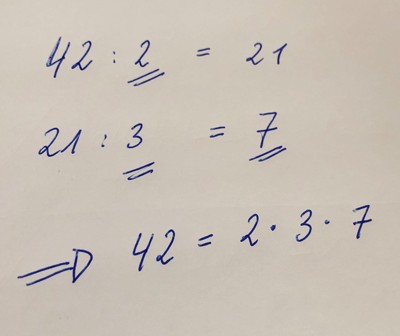 42 : 2 = 21
21 : 3 = 7
⇒ 42 = 2 · 3 · 7